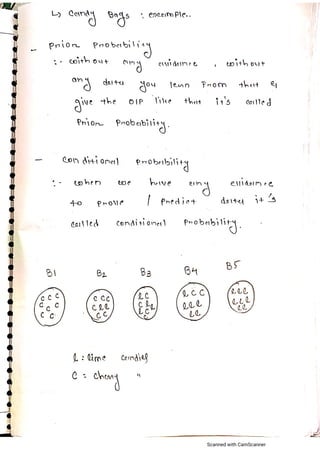 ↳ Candy Bags : example..
— Prion Probability
:- without any evidence , without
any data you lean from that &
give the O/P like that it's called
Prion Probability.
— Conditional probability
:- when we have any evidence
to prove / Predict data it's
called conditional probability.
B1 B2 B3 B4 B5
C C C C C C L C L C C L L L
C C C L L C L L L L L L L L
C C C C L C C L L L L
L : lime candies
C : cherry "
Scanned with CamScanner